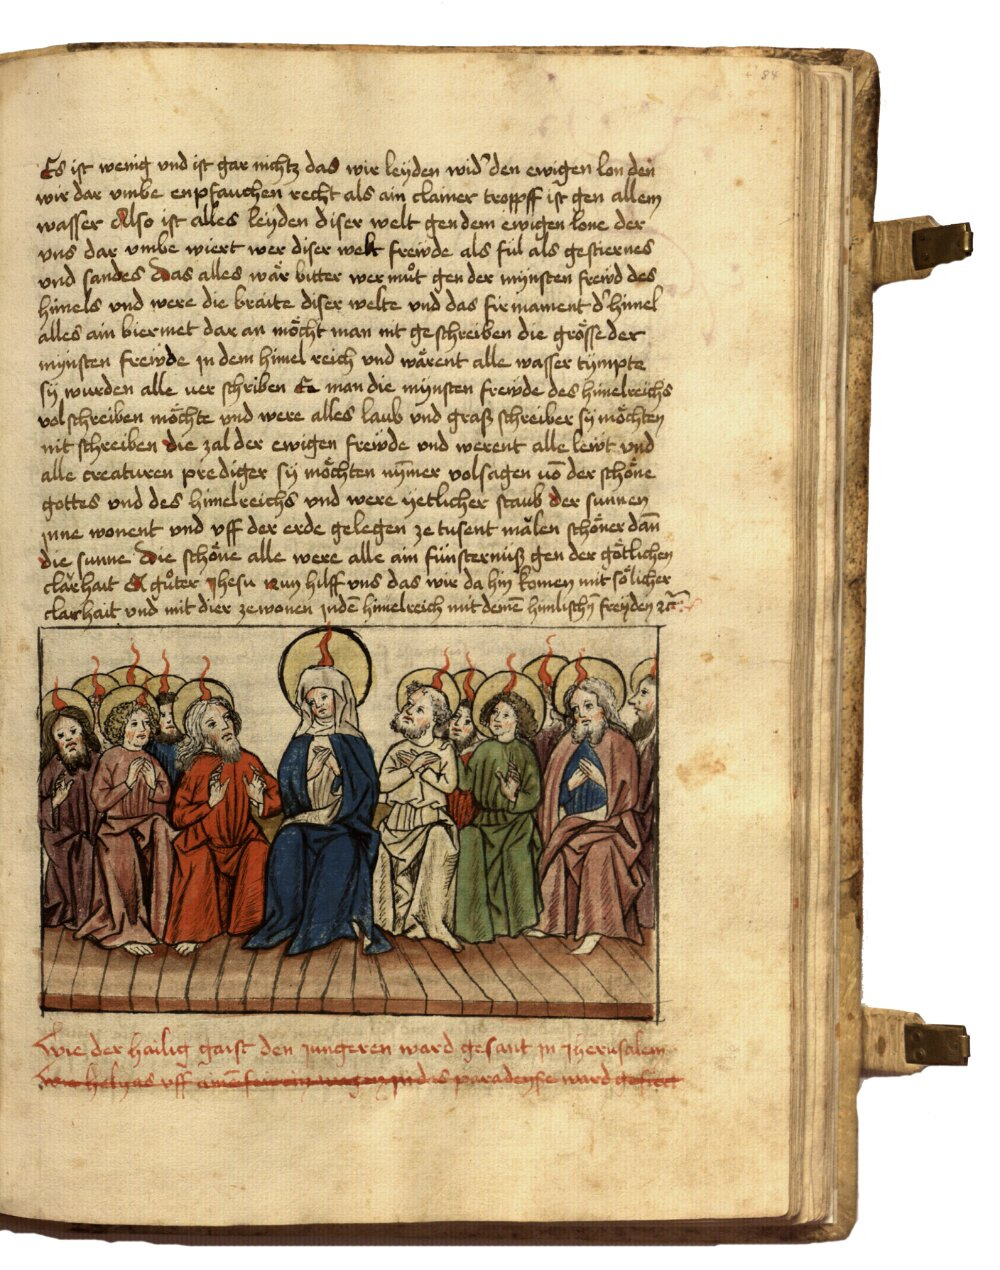 84
Es ist wenig vnd ist gar nichtz das wir leyden wid' den ewigen lon den
wir dar vmbe enpfauchen recht als ain clainer tropff ist gen allem
wasser Also ist alles leyden diser welt gen dem ewigen lone der
vns dar vmbe wiert wer diser welt frewde als fil als gestiernes
vnd sandes Das alles wär bitter wermůt gen der mynsten frewd des
himels vnd were die braite diser welte vnd das firmament d' himel
alles ain biermet dar an möcht man nit geschreiben die grösse der
mynsten frewde jn dem himel reich vnd wärent alle wasser tympte
sy wurden alle verschriben Ee man die mynsten frewde des himelreichs
volschreiben möchte vnd were alles laub vnd graß schreiber sy möchten
nit schreiben die zal der ewigen frewde vnd werent alle lewt vnd
alle creaturen prediger sy möchten nym̄er volsagen vō der schöne
gottes vnd des himelreichs vnd were yetlicher staub der sunnen
jnne wonent vnd vff der erde gelegen ze tusent mālen schöner dañ
die sunne Die schöne alle were alle ain fünsternüß gen der götlichen
clärhait A gůter Jhesu Nun hilff vns das wir da hin komen mit sölicher
clarhait vnd mit dier ze wonen jn dē himelreich mit denē himlischn̄ freyden
Wie der hailig gaist den jungeren ward gesant jn Jherusalem
Wie helyas vff ainē fewrin wagen jn das paradeyse ward gefiert